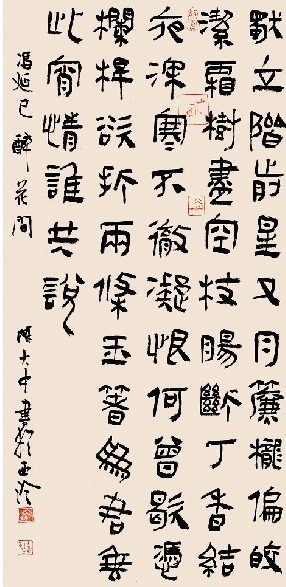 獨立階前星又月簾櫳偏皎
潔霜樹盡空枝腸斷丁香結
夜深寒不徹凝恨何曾歇憑
欄桿欲折兩條玉箸為君垂
此宵情誰共說
馮延巳醉花間
陳大中書於西泠